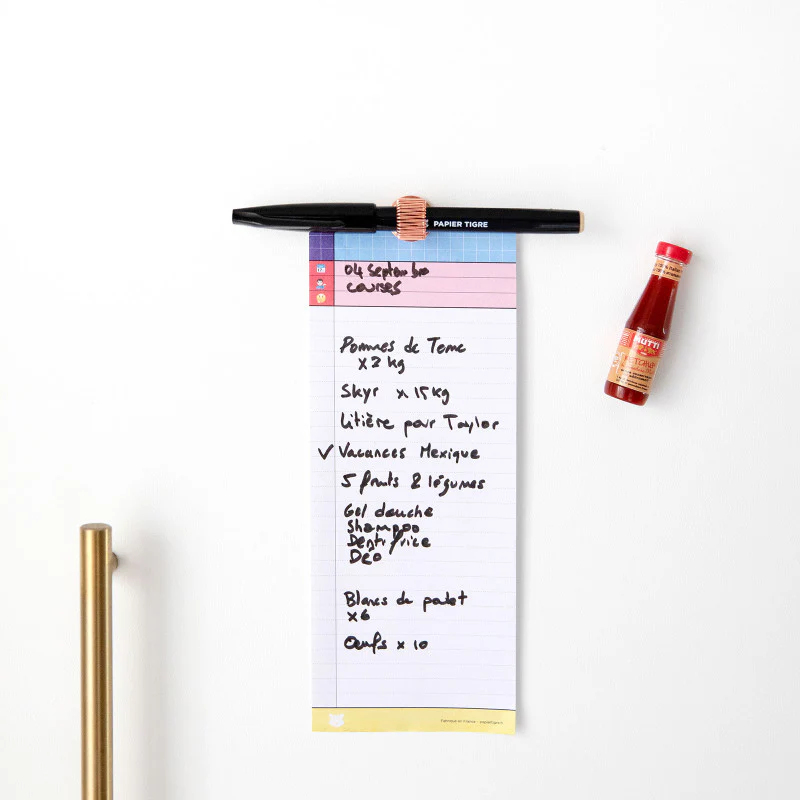 PAPIER TIGRE
04 Septembre
courses
Pommes de Terre
x 2 kg
Skyr x 15 kg
Litière pour Taylor
✓ Vacances Mexique
5 fruits & légumes
Gel douche
Shampoo
Dentifrice
Déo
Blancs de poulet
x6
Œufs x 10
MUTTI